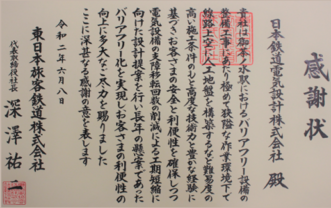 感謝状
日本鉄道電気設計株式会社 殿
貴社は御茶ノ水駅におけるバリアフリー設備の
整備工事にあたり極めて狭隘な作業環境下で
線路上空に人工地盤を構築するなど難易度の
高い施工条件のもと高度な技術と豊かな経験に
基づきお客さまの安全と利便性を確保しつつ
電気設備の支障移転回数の削減による工期短縮に
向けた設計提案を行い長年の懸案であった
バリアフリー化を実現しお客さまの利便性の
向上に多大なご尽力を賜りました
ここに深甚なる感謝の意を表します
令和二年六月八日
東日本旅客鉄道株式会社
代表取締役社長 深澤祐二